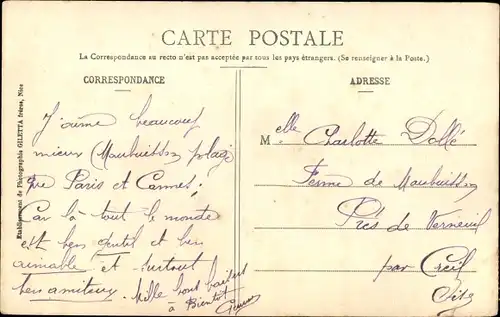 CARTE POSTALE
La Correspondance au recto n'est pas acceptée par tous les pays étrangers. (Se renseigner à la Poste.)
CORRESPONDANCE
J'aime beaucoup
mieux Maubuisson plage
que Paris et Cannes;
Car là tout le monde
est ben gentil et ben
aimable et surtout
ben amiteux. Mille bons baisers
à Bientôt
ADRESSE
Melle Charlotte Dollé
Ferme de Maubuisson
Près de Verneuil
par Creil
Oise
Etablissement de Photographie GILETTA frères, Nice